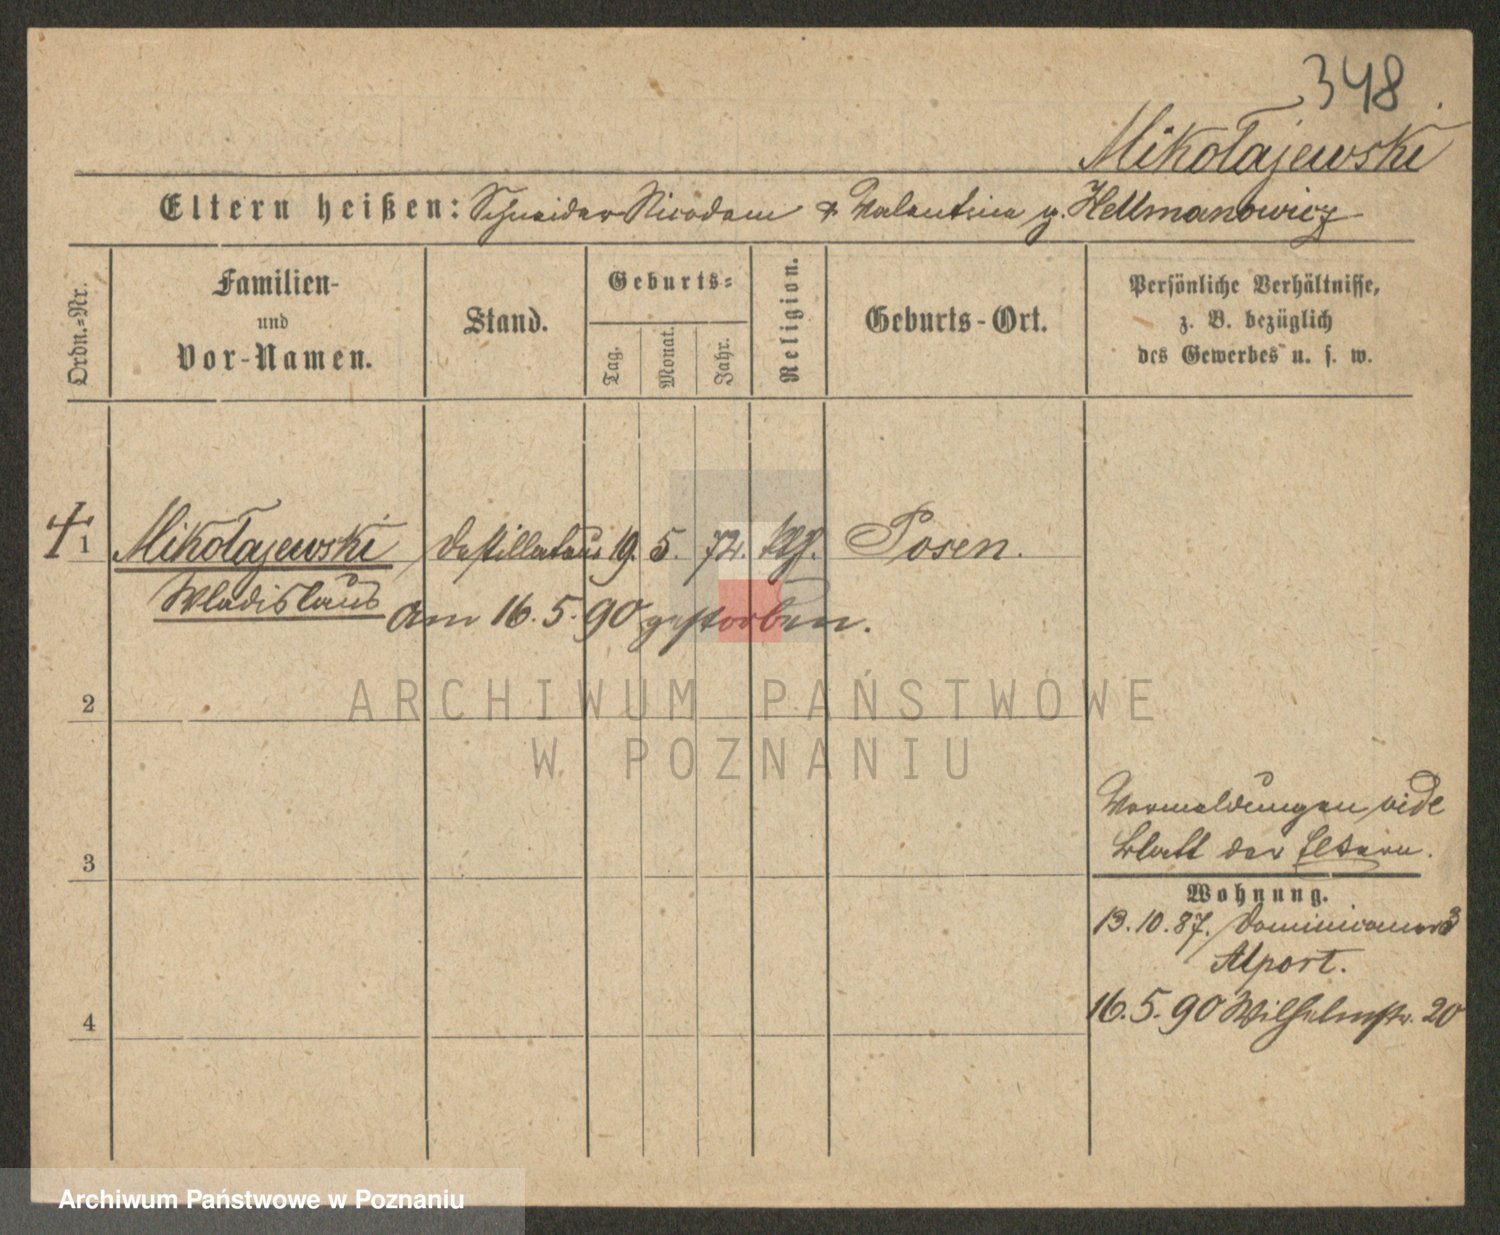 348
Mikołajewski
Eltern heißen: Schneider Nicodem & Valentina g. Hellmanowicz
Ordn.=Nr.
Familien-
und
Vor-Namen.
Stand.
Geburts=
Tag.
Monat.
Jahr.
Religion.
Geburts-Ort.
Persönliche Verhältnisse,
z. B. bezüglich
des Gewerbes u. s. w.
1 Mikołajewski 19. 5. 72. kth. Posen.
Wladislaus am 16. 5. 90 gestorben.
2
ARCHIWUM PAŃSTWOWE
W POZNANIU
Vormeldungen vide
3 Blatt der Eltern.
Wohnung.
13. 10. 87. 3
16. 5. 90 Wilhelmstr. 20
4
Archiwum Państwowe w Poznaniu